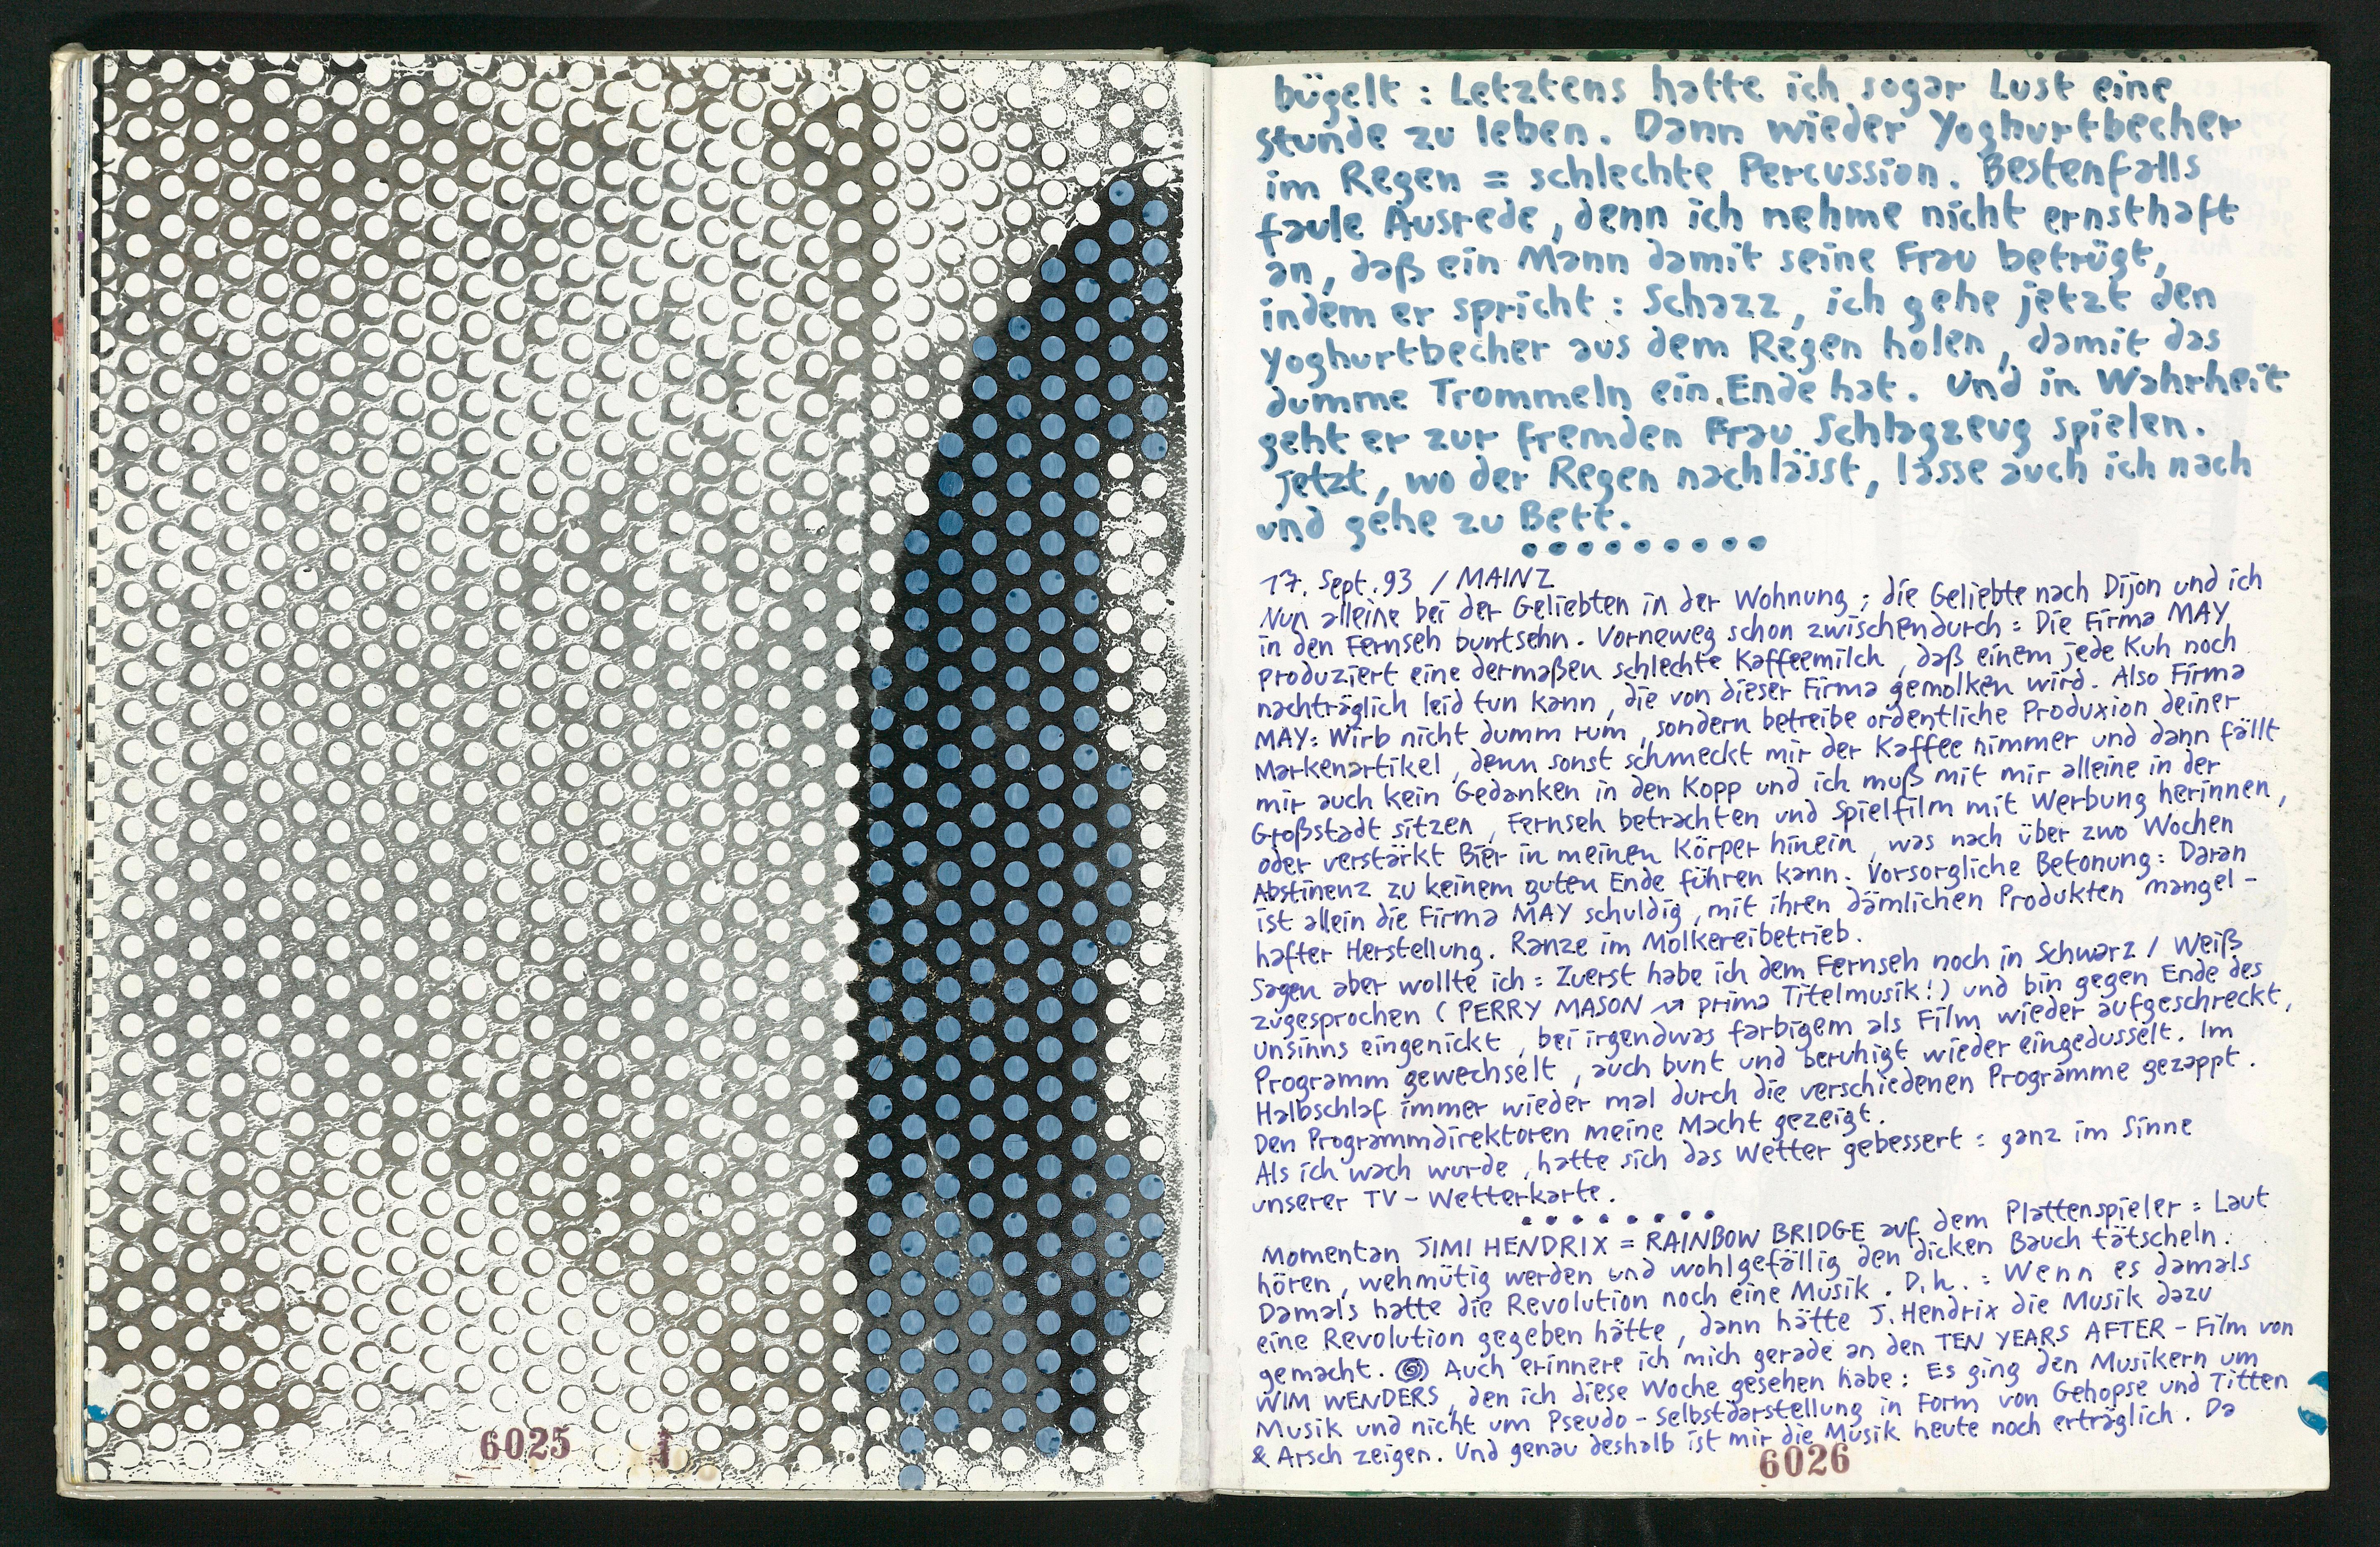 6025
bügelt : Letztens hatte ich sogar Lust eine
stunde zu leben. Dann wieder Yoghurtbecher
im Regen = schlechte Percussion. Bestenfalls
faule Ausrede, denn ich nehme nicht ernsthaft
an, daß ein Mann damit seine Frau betrügt,
indem er spricht : Schazz, ich gehe jetzt den
Yoghurtbecher aus dem Regen holen, damit das
dumme Trommeln ein Ende hat. Und in Wahrheit
geht er zur fremden Frau Schlagzeug spielen.
Jetzt, wo der Regen nachlässt, lasse auch ich nach
und gehe zu Bett.
17. Sept. 93 / MAINZ
Nun alleine bei der Geliebten in der Wohnung ; die Geliebte nach Dijon und ich
in den Fernseh buntsehn. Vorneweg schon zwischendurch = Die Firma MAY
produziert eine dermaßen schlechte Kaffeemilch, daß einem jede Kuh noch
nachträglich leid tun kann, die von dieser Firma gemolken wird. Also Firma
MAY: Wirb nicht dumm rum, sondern betreibe ordentliche Produxion deiner
Markenartikel, denn sonst schmeckt mir der Kaffee nimmer und dann fällt
mir auch kein Gedanken in den Kopp und ich muß mit mir alleine in der
Großstadt sitzen, Fernseh betrachten und Spielfilm mit Werbung herinnen,
oder verstärkt Bier in meinen Körper hinein, was nach über zwo Wochen
Abstinenz zu keinem guten Ende führen kann. Vorsorgliche Betonung: Daran
ist allein die Firma MAY schuldig, mit ihren dämlichen Produkten mangel-
hafter Herstellung. Ranze im Molkereibetrieb.
Sagen aber wollte ich = Zuerst habe ich dem Fernseh noch in Schwarz / Weiß
zugesprochen ( PERRY MASON → prima Titelmusik! ) und bin gegen Ende des
unsinns eingenickt, bei irgendwas farbigem als Film wieder aufgeschreckt,
Programm gewechselt, auch bunt und beruhigt wieder eingedusselt. Im
Halbschlaf immer wieder mal durch die verschiedenen Programme gezappt.
Den Programmdirektoren meine Macht gezeigt.
Als ich wach wurde, hatte sich das Wetter gebessert = ganz im Sinne
unserer TV-Wetterkarte.
Momentan JIMI HENDRIX = RAINBOW BRIDGE auf dem Plattenspieler = Laut
hören, wehmütig werden und wohlgefällig den dicken Bauch tätscheln.
Damals hatte die Revolution noch eine Musik. D.h. = Wenn es damals
eine Revolution gegeben hätte, dann hätte J. Hendrix die Musik dazu
gemacht. Auch erinnere ich mich gerade an den TEN YEARS AFTER-Film von
WIM WENDERS, den ich diese Woche gesehen habe : Es ging den Musikern um
Musik und nicht um Pseudo-Selbstdarstellung in Form von Gehopse und Titten
& Arsch zeigen. Und genau deshalb ist mir die Musik heute noch erträglich. Da
6026